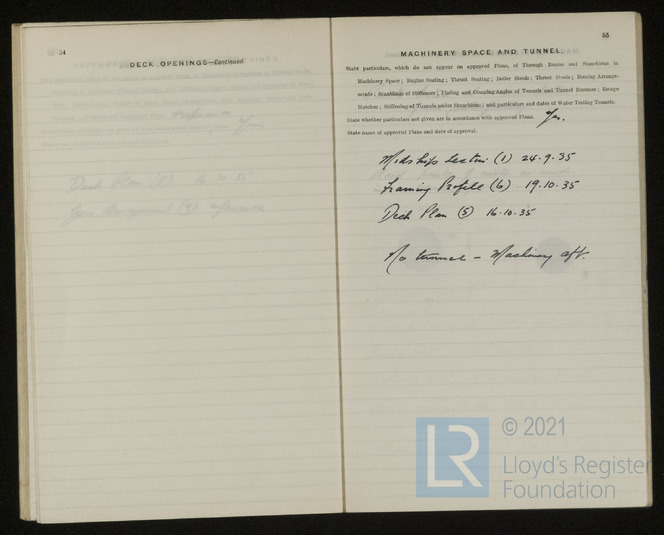 54
DECK OPENINGS—Continued.
55
MACHINERY SPACE AND TUNNEL.
State particulars, which do not appear on approved Plans, of Through Beams and Stanchions in
Machinery Space; Engine Seating; Thrust Seating; Boiler Stools; Thrust Stools; Boxing Arrange-
ments; Scantlings of Stiffeners; Plating and Coaming Angles of Tunnels and Tunnel Recesses; Escape
Hatches; Stiffening of Tunnels under Stanchions; and particulars and dates of Water Testing Tunnels.
State whether particulars not given are in accordance with approved Plans. Yes.
State name of approved Plans and date of approval.
Midships Section (1) 24.9.35
Framing Profile (6) 19.10.35
Deck Plan (5) 16.10.35
No tunnel – Machinery aft.
LR
© 2021
Lloyd's Register
Foundation